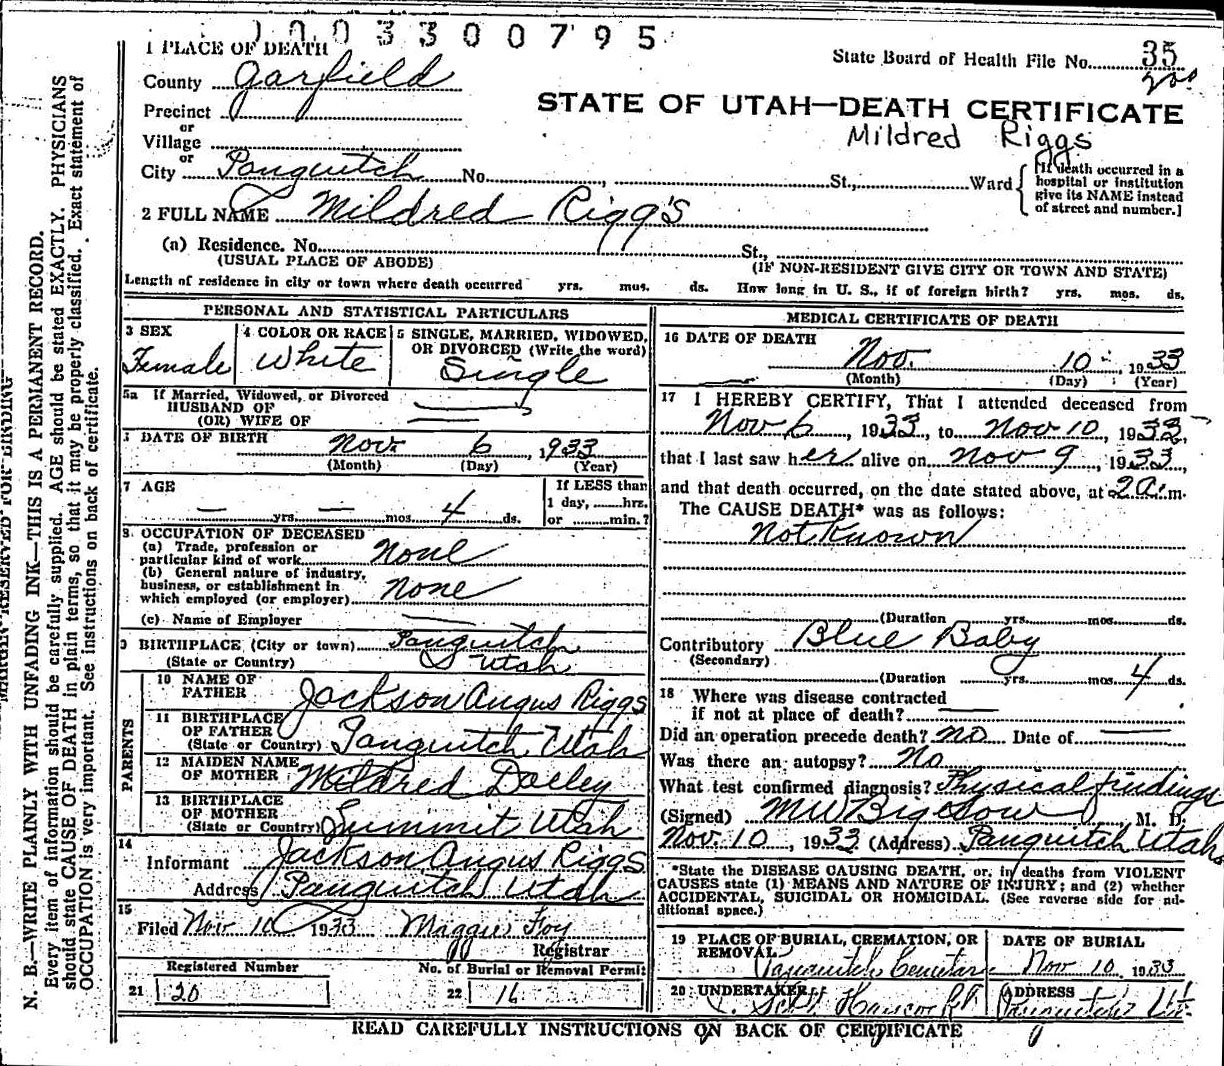 1 0 0 3 3 0 0 7 9 5
1 PLACE OF DEATH
State Board of Health File No. 35
200
County Garfield
STATE OF UTAH—DEATH CERTIFICATE
Precinct
Mildred Riggs
or
Village
or
City Panguitch No. St., Ward
[If death occurred in a hospital or institution give its NAME instead of street and number.]
2 FULL NAME Mildred Riggs
(a) Residence. No. St.,
(USUAL PLACE OF ABODE) (IF NON-RESIDENT GIVE CITY OR TOWN AND STATE)
Length of residence in city or town where death occurred yrs. mos. ds. How long in U. S., if of foreign birth? yrs. mos. ds.
PERSONAL AND STATISTICAL PARTICULARS
3 SEX Female
4 COLOR OR RACE White
5 SINGLE, MARRIED, WIDOWED, OR DIVORCED (Write the word) Single
5a If Married, Widowed, or Divorced
HUSBAND OF
(OR) WIFE OF
DATE OF BIRTH Nov. 6, 1933
(Month) (Day) (Year)
7 AGE — yrs. — mos. 4 ds.
If LESS than
1 day, hrs.
or min.?
8. OCCUPATION OF DECEASED
(a) Trade, profession or
particular kind of work None
(b) General nature of industry,
business, or establishment in
which employed (or employer) None
(c) Name of Employer
9 BIRTHPLACE (City or town) Panguitch
(State or Country) Utah
PARENTS
10 NAME OF FATHER Jackson Angus Riggs
11 BIRTHPLACE OF FATHER (State or Country) Panguitch Utah
12 MAIDEN NAME OF MOTHER Mildred Dalley
13 BIRTHPLACE OF MOTHER (State or Country) Summit Utah
14 Informant Jackson Angus Riggs
Address Panguitch Utah
15 Filed Nov 10 1933 Maggie Foy
Registrar
Registered Number
21 20
No. of Burial or Removal Permit
22 16
MEDICAL CERTIFICATE OF DEATH
16 DATE OF DEATH
Nov. 10, 1933
(Month) (Day) (Year)
17 I HEREBY CERTIFY, That I attended deceased from
Nov 6, 1933, to Nov 10, 1933,
that I last saw her alive on Nov 9, 1933
and that death occurred, on the date stated above, at 2 a. m.
The CAUSE DEATH* was as follows:
Not Known
(Duration yrs. mos. ds.
Contributory Blue Baby
(Secondary)
(Duration yrs. mos. 4 ds.
18 Where was disease contracted
if not at place of death?
Did an operation precede death? No Date of
Was there an autopsy? No
What test confirmed diagnosis? Physical findings
(Signed) M W Bigelow, M. D.
Nov. 10, 1933 (Address) Panguitch Utah
*State the DISEASE CAUSING DEATH, or, in deaths from VIOLENT
CAUSES state (1) MEANS AND NATURE OF INJURY; and (2) whether
ACCIDENTAL, SUICIDAL OR HOMICIDAL. (See reverse side for ad-
ditional space.)
19 PLACE OF BURIAL, CREMATION, OR REMOVAL Panguitch Cemetary
DATE OF BURIAL Nov 10, 1933
20 UNDERTAKER
ADDRESS Panguitch Ut.
READ CAREFULLY INSTRUCTIONS ON BACK OF CERTIFICATE
MARGIN RESERVED FOR BINDING
N. B.—WRITE PLAINLY WITH UNFADING INK—THIS IS A PERMANENT RECORD.
Every item of information should be carefully supplied. AGE should be stated EXACTLY. PHYSICIANS
should state CAUSE OF DEATH in plain terms, so that it may be properly classified. Exact statement of
OCCUPATION is very important. See instructions on back of certificate.